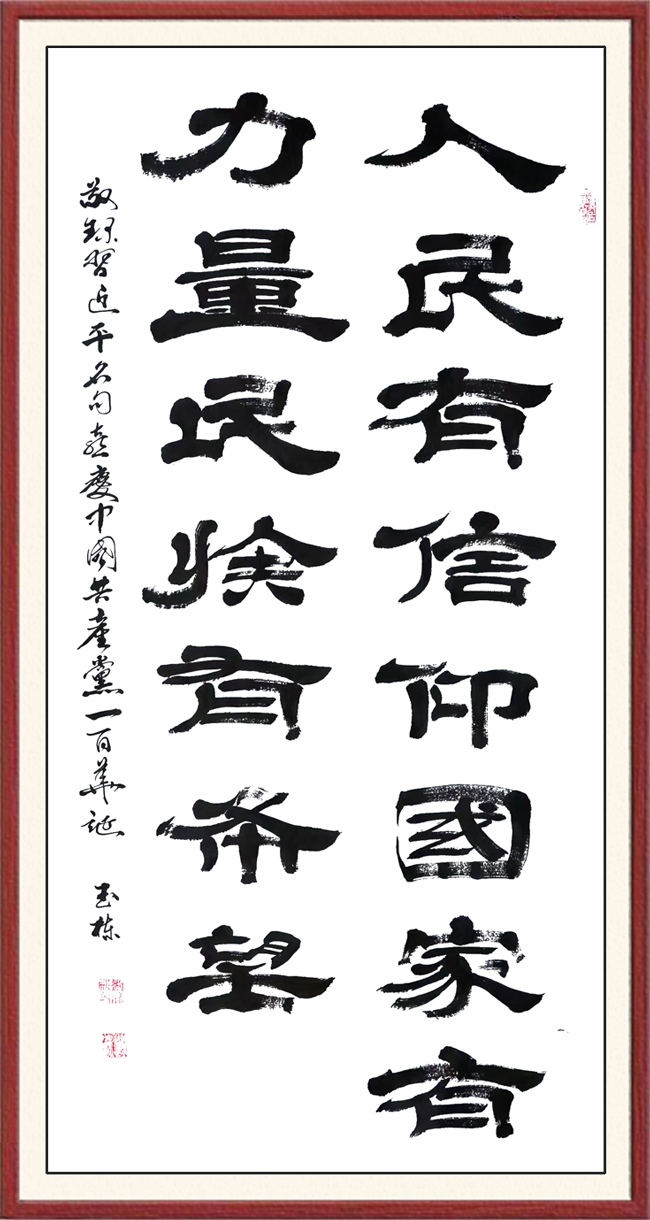 人民有信仰國家有
力量民族有希望
敬錄習近平名句喜慶中國共產黨一百華誕
玉栋